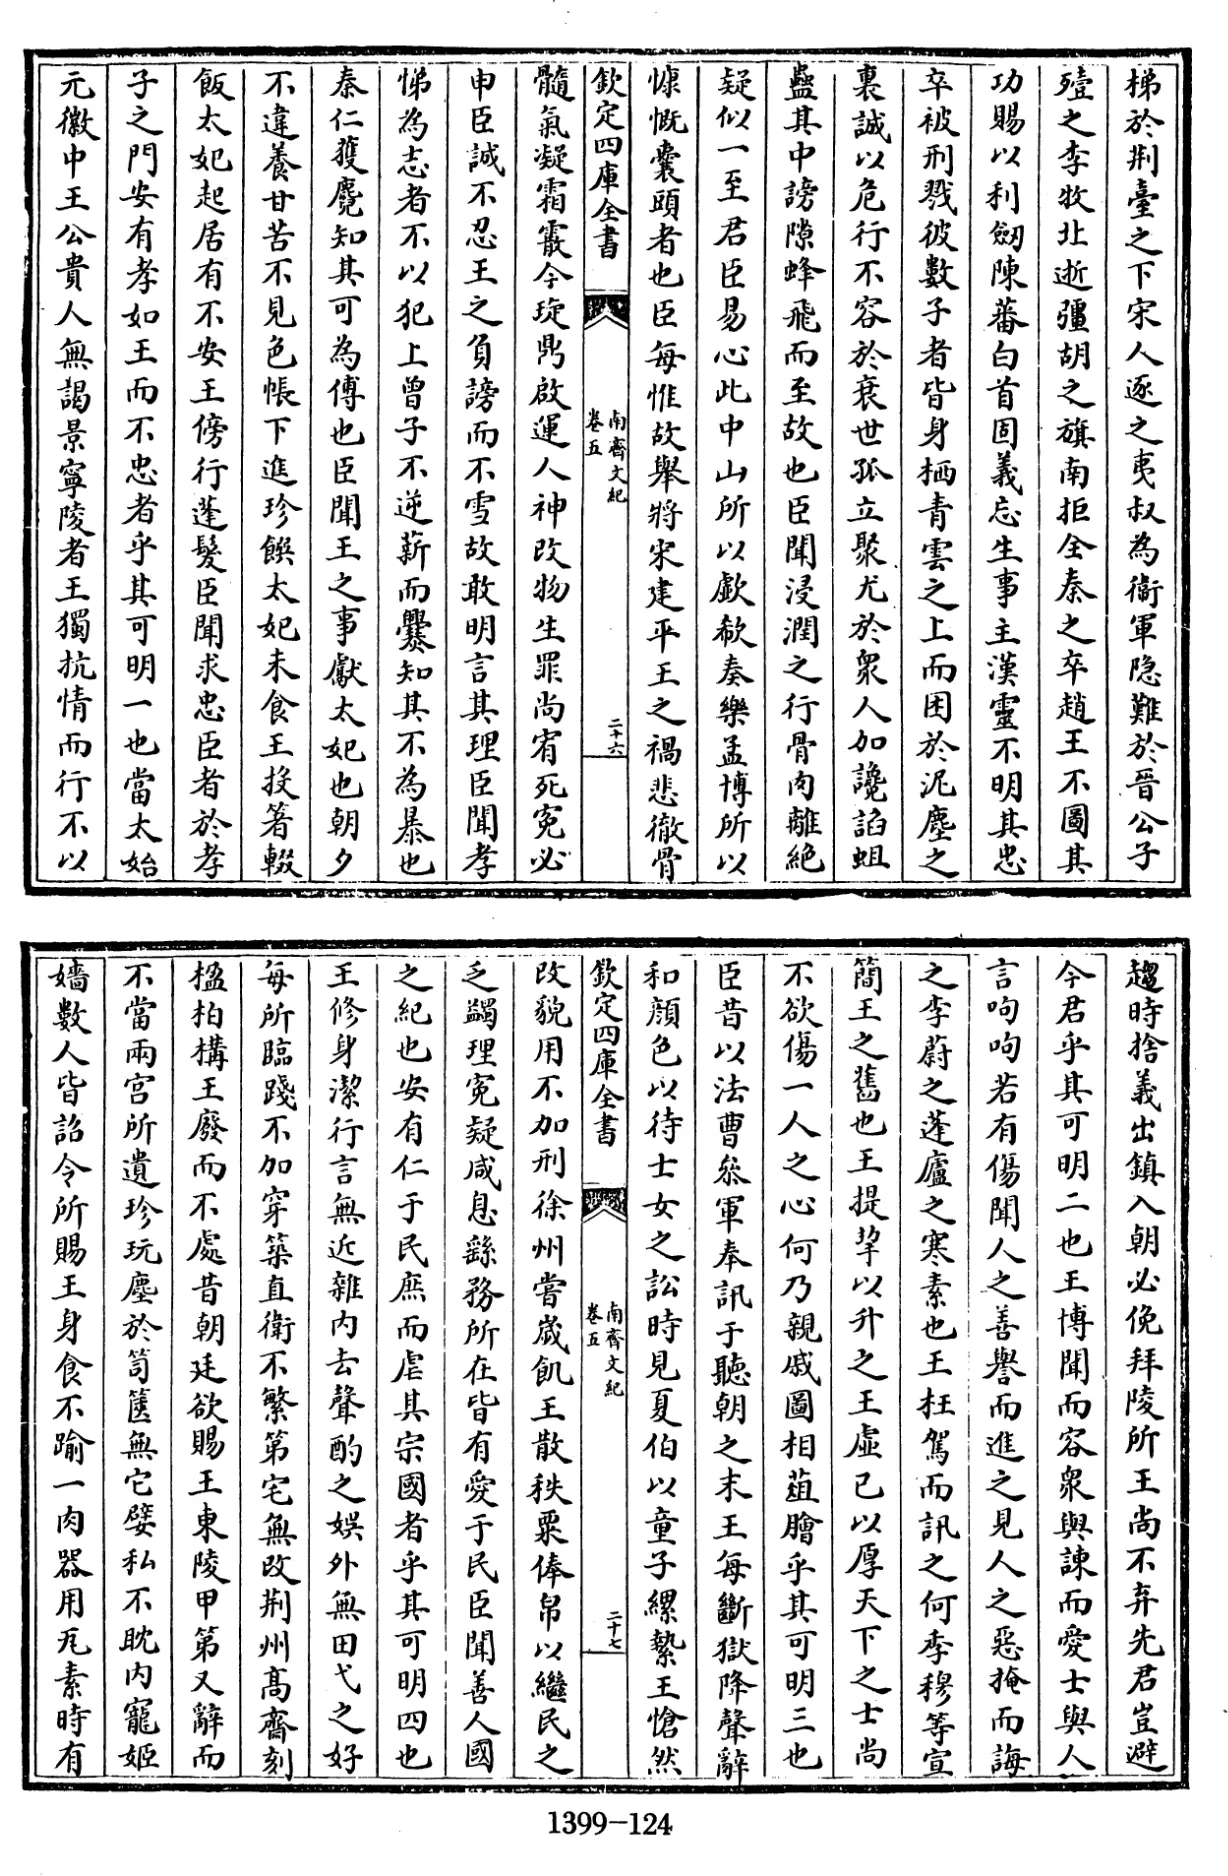 梯於荆臺之下宋人逐之夷叔為衛軍隐難於晉公子
殪之李牧北逝彊胡之旗南拒全秦之卒趙王不圖其
功賜以利劒陳蕃白首固義忘生事主漢靈不明其忠
卒被刑戮彼數子者皆身栖青雲之上而困於泥塵之
裏誠以危行不容於衰世孤立聚尤於衆人加讒諂蛆
蠱其中謗隙蜂飛而至故也臣聞浸潤之行骨肉離絶
疑似一至君臣易心此中山所以歔欷奏樂孟博所以
慷慨囊頭者也臣每惟故舉將宋建平王之禍悲徹骨
欽定四庫全書
南齊文紀
卷五
二十六
髓氣凝霜霰今琁鼎啟運人神改物生罪尚宥死寃必
申臣誠不忍王之負謗而不雪故敢明言其理臣聞孝
悌為志者不以犯上曾子不逆薪而爨知其不為暴也
秦仁獲麑知其可為傅也臣聞王之事獻太妃也朝夕
不違養甘苦不見色帳下進珍饌太妃未食王投箸輟
飯太妃起居有不安王傍行蓬髮臣聞求忠臣者於孝
子之門安有孝如王而不忠者乎其可明一也當太始
元徽中王公貴人無謁景寧陵者王獨抗情而行不以
趨時捨義出鎮入朝必俛拜陵所王尚不弃先君豈避
今君乎其可明二也王博聞而容衆與諫而愛士與人
言呴呴若有傷聞人之善譽而進之見人之惡掩而誨
之李蔚之蓬廬之寒素也王枉駕而訊之何季穆等宣
簡王之舊也王提挈以升之王虛己以厚天下之士尚
不欲傷一人之心何乃親戚圖相葅膾乎其可明三也
臣昔以法曹叅軍奉訊于聽朝之末王每斷獄降聲辭
和顔色以待士女之訟時見夏伯以童子縲縶王愴然
欽定四庫全書
南齊文紀
卷五
二十七
改貌用不加刑徐州嘗歲飢王散秩粟俸帛以繼民之
乏蠲理寃疑咸息繇務所在皆有愛于民臣聞善人國
之紀也安有仁于民庶而虐其宗國者乎其可明四也
王修身潔行言無近雜内去聲酌之娱外無田弋之好
每所臨踐不加穿築直衛不繁第宅無改荆州高齋刻
楹柏構王廢而不處昔朝廷欲賜王東陵甲第又辭而
不當兩宫所遺珍玩塵於笥篋無它嬖私不耽内寵姬
嬙數人皆詔令所賜王身食不踰一肉器用瓦素時有
1399-124